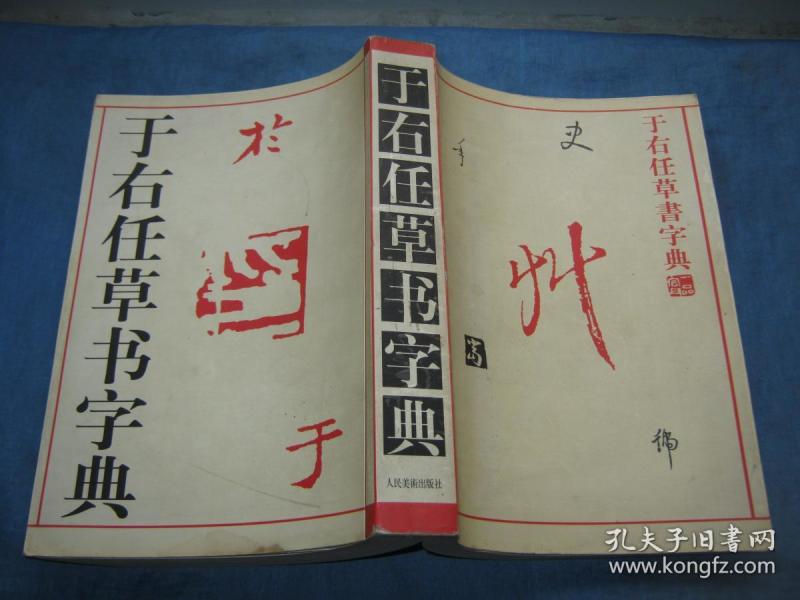 于右任草书字典
於
于
于右任草书字典
人民美術出版社
史
艸
编
于右任草書字典
孔夫子旧书网
www.kongfz.com